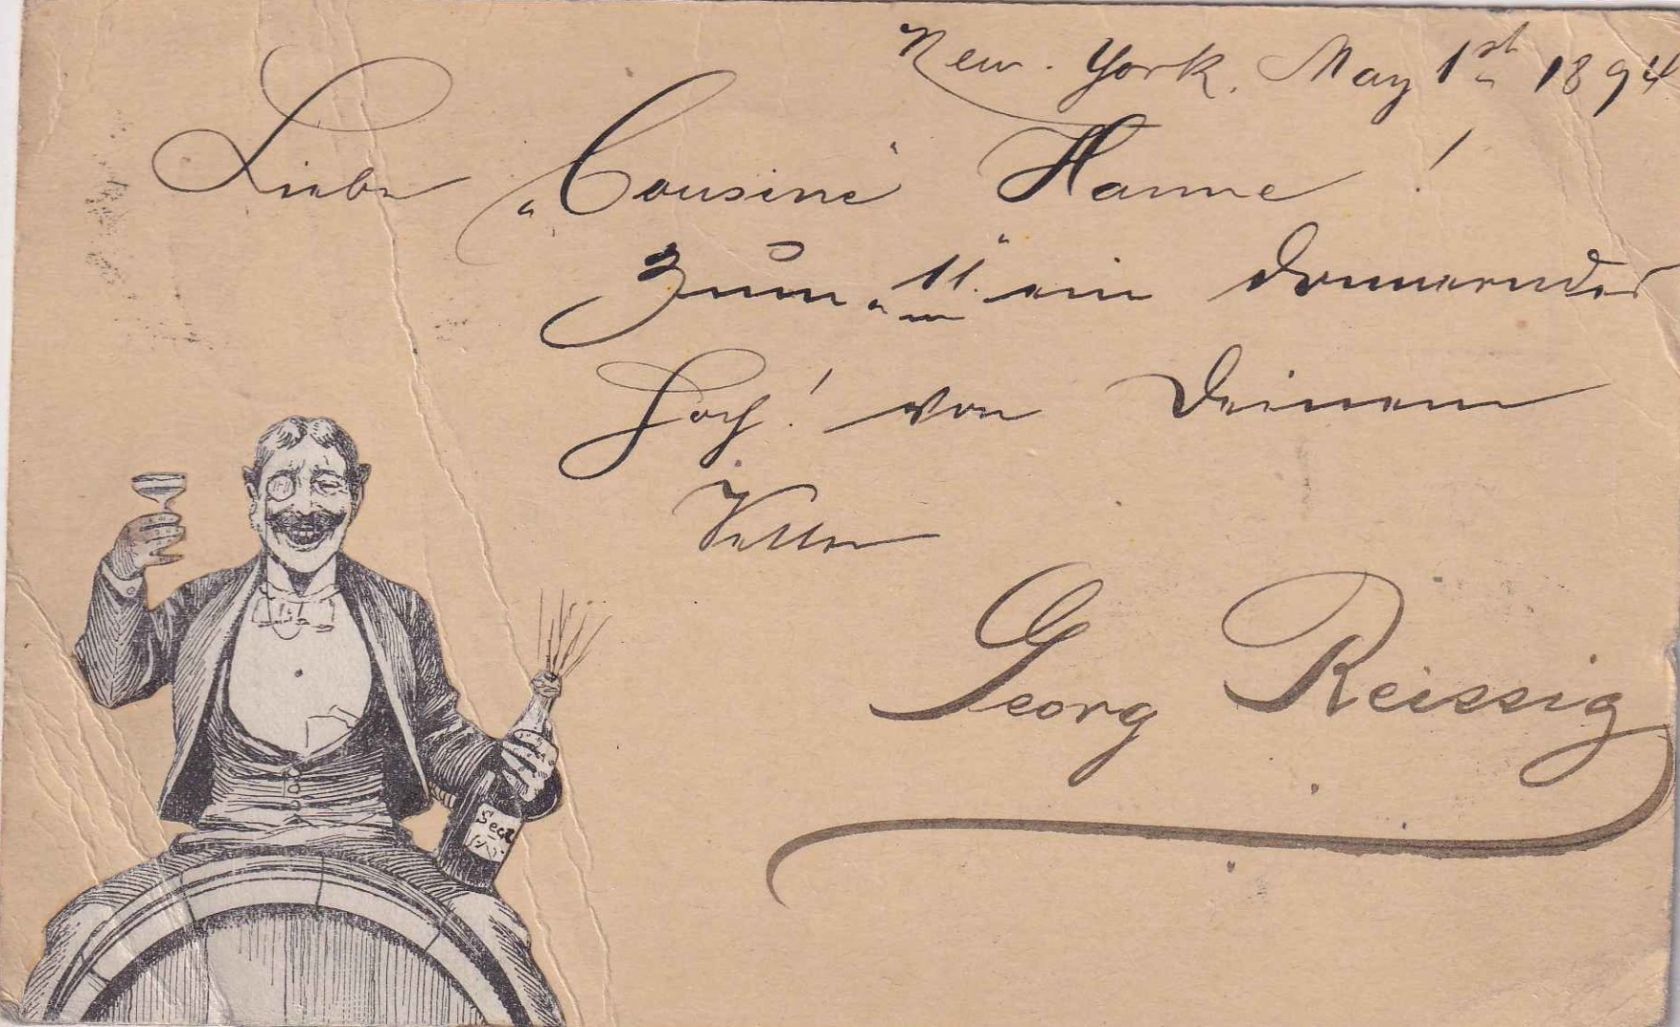 New-York, May 1st 1894
Liebe „Cousine“ Hanne!
Zum „11.“ ein donnernder
Hoch! von Deinem
Vetter
Georg Reissig
Sect